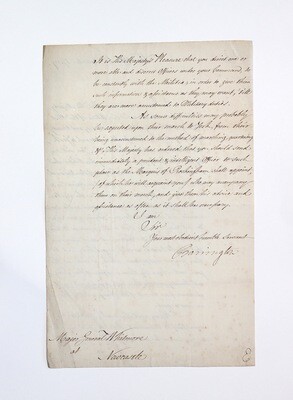 It is His Majesty's Pleasure that you direct one or
more able and discreet Officers under your Command, to
be constantly with the Militia, in order to give them
such information & assistance as they may want, till
they are more accustomed to Military dutys.
As some difficulties may probably
be expected upon their march to York, from their
being unaccustomed to the method of marching, quartering
&c. His Majesty has ordered that you should send
immediately, a prudent & intelligent Officer to such
place as the Marquis of Rockingham shall appoint
(of which he will acquaint you) who may accompany
them on their march, and give them his advice and
assistance as often as it shall be necessary.
I am
Sir
Your most obedient humble Servant
Barrington
Major General Whitmore
at
Newcastle